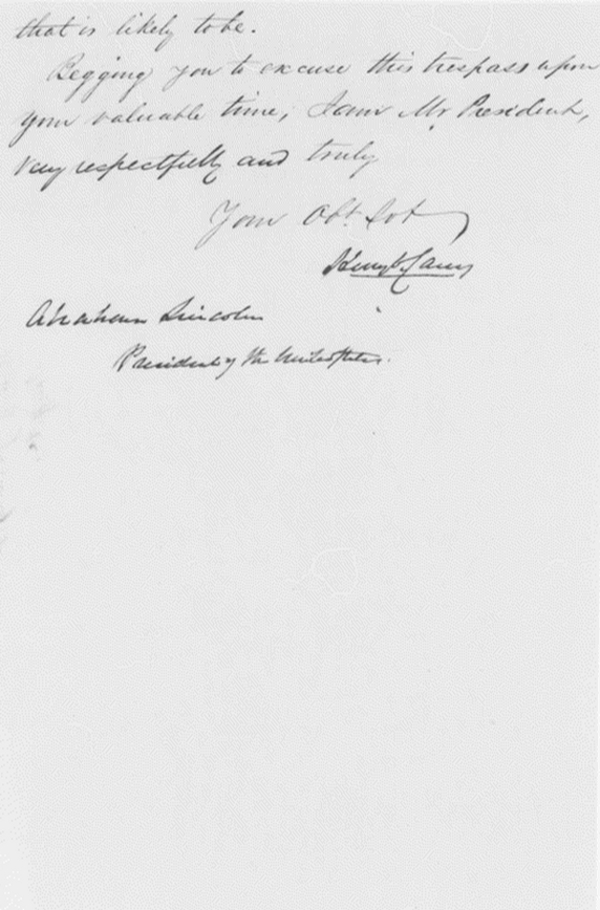 that is likely to be.
Begging you to excuse this trespass upon
your valuable time, I am Mr President,
Very respectfully and truly
Your Obt. Svt
Henry C. Carey
Abraham Lincoln
President of the United States.